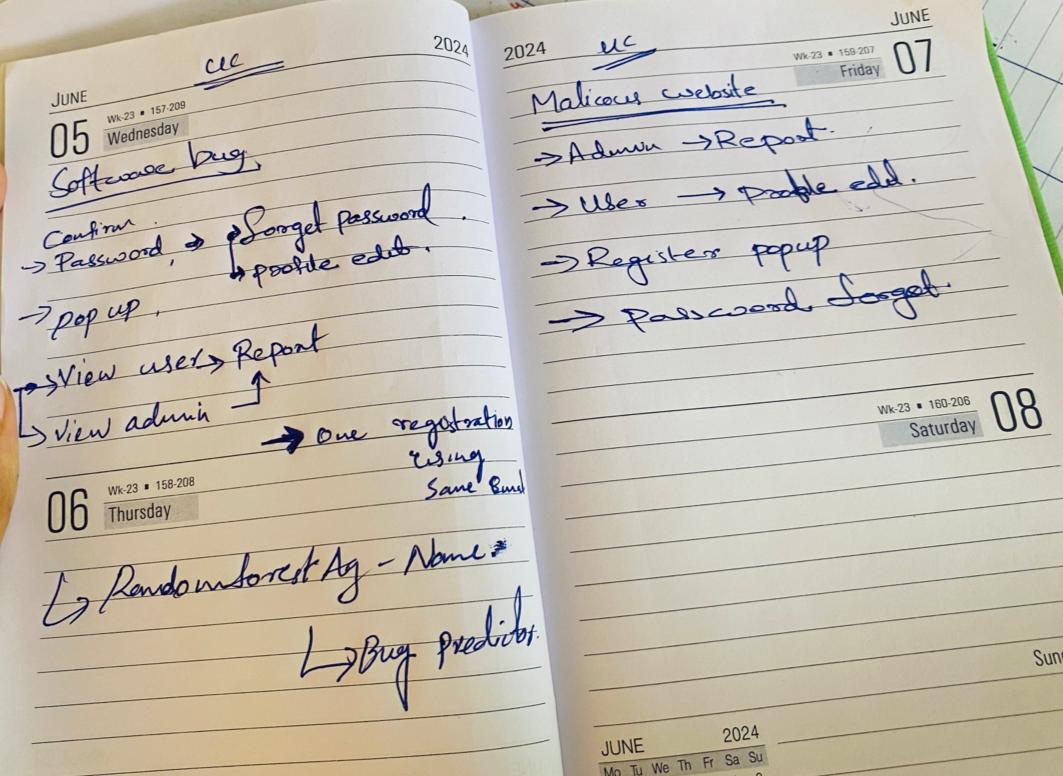 UC
2024
JUNE
Wk-23 ▪ 157-209
05 Wednesday
Software bug,
Confirm
→ Password, → Forget password.
↳ profile edit.
→ pop up,
→ View user → Report
↳ View admin
→ One registration
using
Same Email
Wk-23 ▪ 158-208
06 Thursday
↳ Randomforest Ag - Name:
↳ Bug Predictor.
JUNE
2024 UC
Wk-23 ▪ 159-207
Friday 07
Malicous website
→ Admin → Report.
→ User → profile edit.
→ Register popup
→ Password forget.
Wk-23 ▪ 160-206
Saturday 08
JUNE 2024
Mo Tu We Th Fr Sa Su